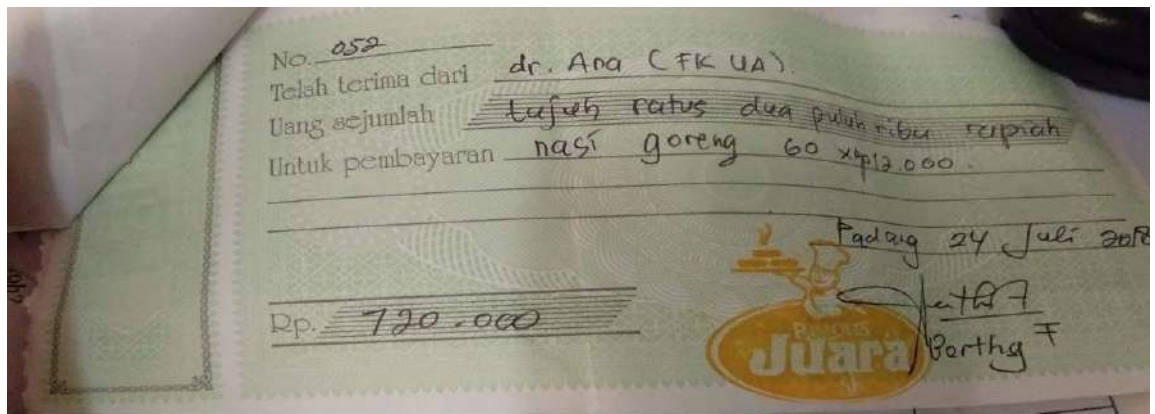 No. 052
Telah terima dari dr. Ana (FK UA).
Uang sejumlah tujuh ratus dua puluh ribu rupiah
Untuk pembayaran nasi goreng 60 x Rp12.000.
Padang 24 Juli 2018
Rp. 720.000
Juara